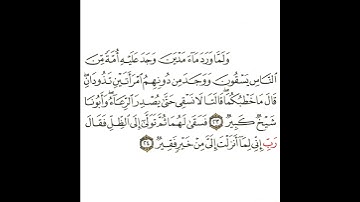 وَلَمَّا وَرَدَ مَآءَ مَدْيَنَ وَجَدَ عَلَيْهِ أُمَّةً مِّنَ
ٱلنَّاسِ يَسْقُونَ وَوَجَدَ مِن دُونِهِمُ ٱمْرَأَتَيْنِ تَذُودَانِۖ
قَالَ مَا خَطْبُكُمَاۖ قَالَتَا لَا نَسْقِى حَتَّىٰ يُصْدِرَ ٱلرِّعَآءُۖ وَأَبُونَا
شَيْخٌ كَبِيرٌ ٢٣ فَسَقَىٰ لَهُمَا ثُمَّ تَوَلَّىٰٓ إِلَى ٱلظِّلِّ فَقَالَ
رَبِّ إِنِّى لِمَآ أَنزَلْتَ إِلَىَّ مِنْ خَيْرٍ فَقِيرٌ ٢٤